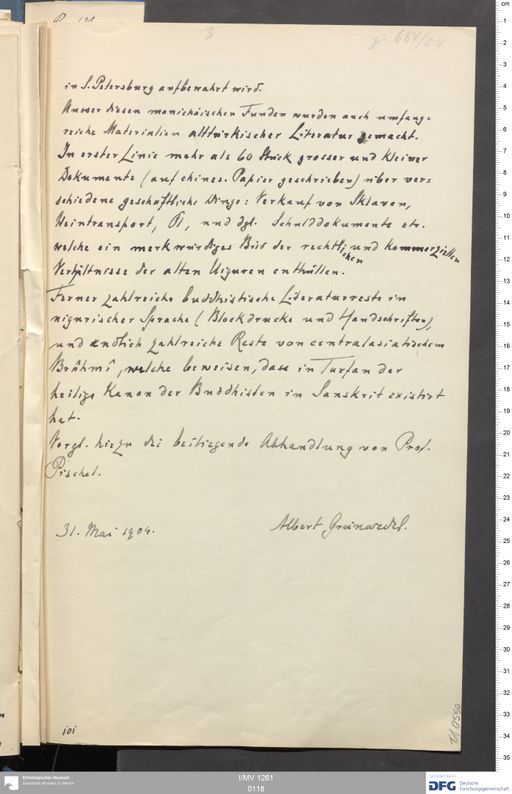 3
684/04
in S. Petersburg aufbewahrt wird.
Ausser diesen manichäischen Funden wurden auch umfang-
reiche Materialien alttürkischer Literatur gemacht.
In erster Linie mehr als 60 Stück grosser und kleiner
Dokumente (auf chines. Papier geschrieben) über ver-
schiedene geschäftliche Dinge: Verkauf von Sklaven,
Weintransport, Öl, und dgl. Schulddokumente etc.
welche ein merkwürdiges Bild der rechtlichen und kommerziellen
Verhältnisse der alten Uiguren enthüllen.
Ferner zahlreiche buddhistische Literaturreste in
uigurischer Sprache (Blockdrucke und Handschriften),
und endlich zahlreiche Reste von centralasiatischem
Brâhmî, welche beweisen, dass in Turfan der
heilige Kanon der Buddhisten in Sanskrit existirt
hat.
Vergl. hiezu die beiliegende Abhandlung von Prof.
Pischel.
31. Mai 1904.
Albert Grünwedel.
101
TA 0550
Ethnologisches Museum
Staatliche Museen zu Berlin
I/MV 1261
0118
gefördert durch
DFG
Deutsche
Forschungsgemeinschaft
cm
1
2
3
4
5
6
7
8
9
10
11
12
13
14
15
16
17
18
19
20
21
22
23
24
25
26
27
28
29
30
31
32
33
34
35